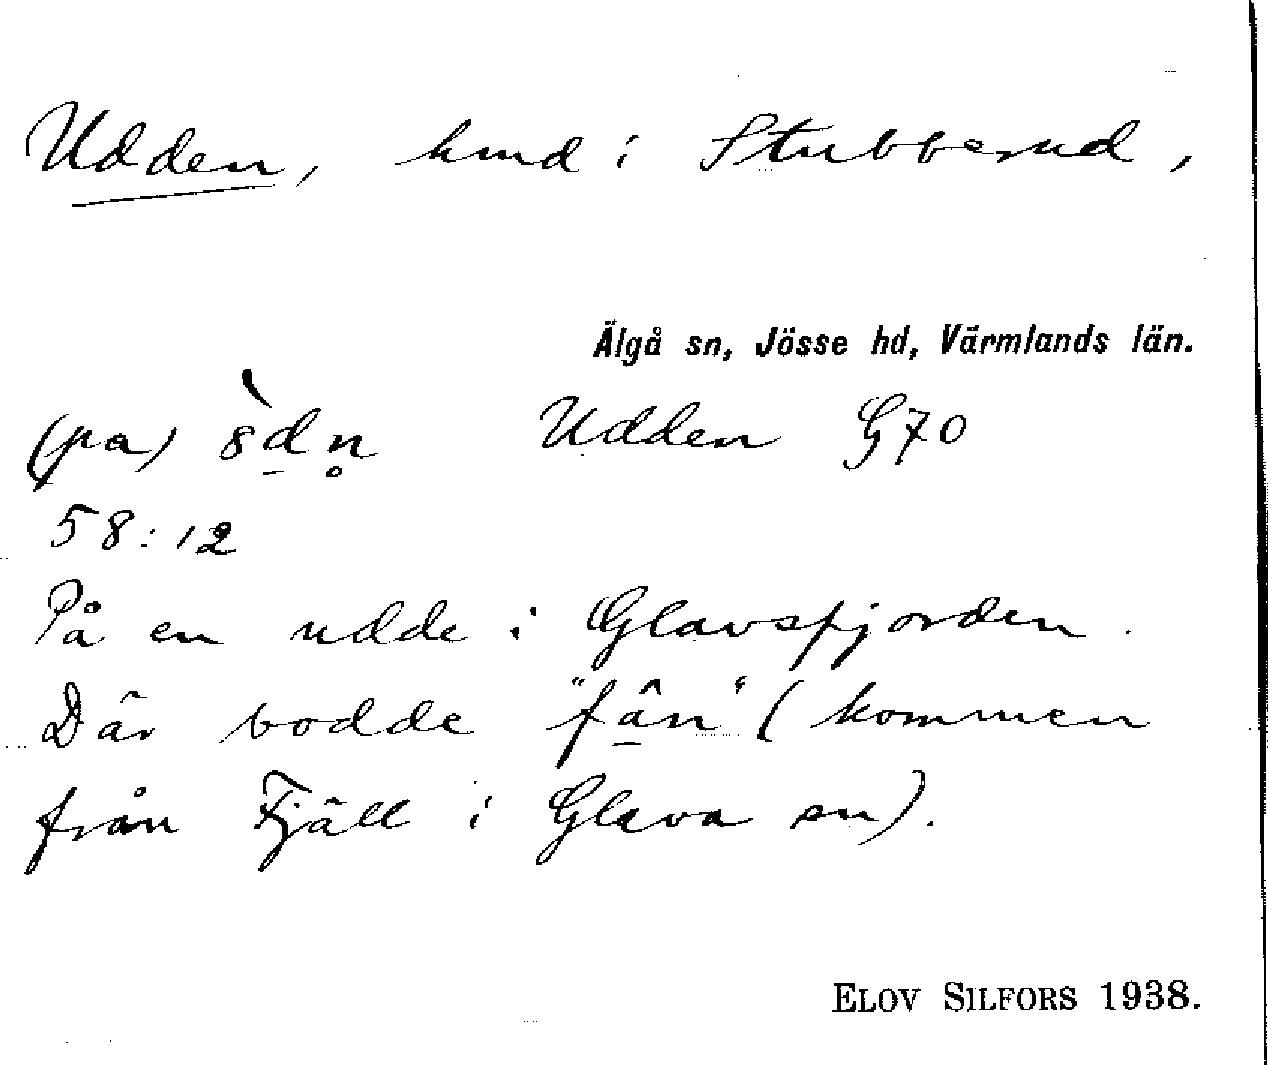 Udden, hmd i Stubberud,
Älgå sn, Jösse hd, Värmlands län.
(pa) 8̀d̠n̥ Udden G70
58:12
På en udde i Glavsfjorden.
Där bodde "fân" (kommen
från Fjäll i Glava sn).
ELOV SILFORS 1938.